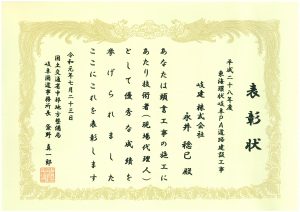 表彰状
平成二十八年度
東海環状岐阜PA道路建設工事
岐建 株式会社
永井 稔己 殿
あなたは頭書工事の施工に
あたり技術者(現場代理人)
として優秀な成績を
挙げられました
ここにこれを表彰します
令和元年七月二十三日
国土交通省中部地方整備局
岐阜国道事務所長 菅野 真一郎